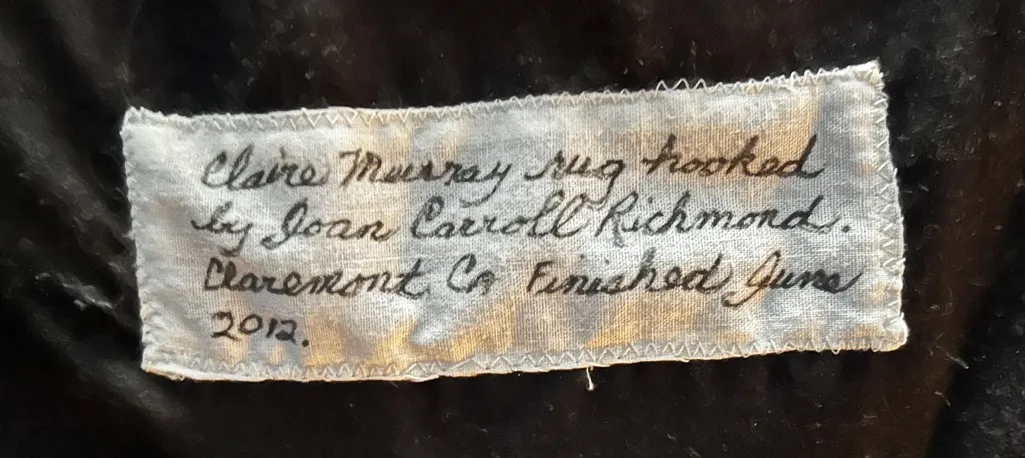 Claire Murray rug hooked
by Joan Carroll Richmond.
Claremont Ca Finished June
2012.